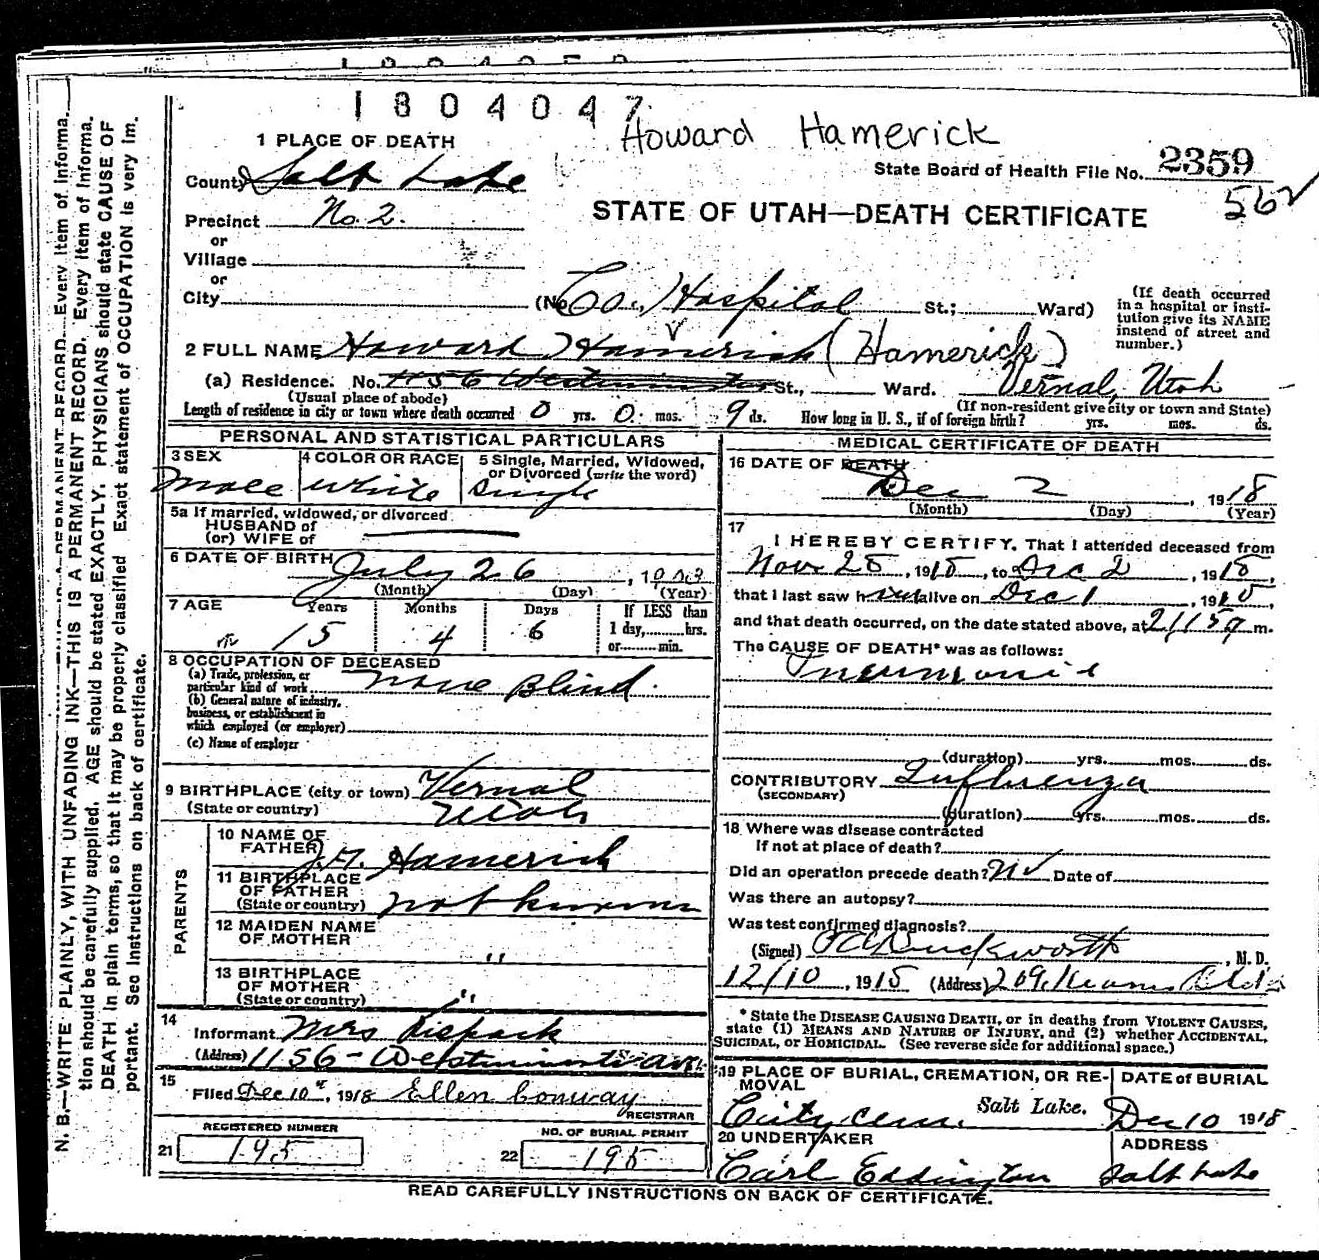 1804047
Howard Hamerick
1 PLACE OF DEATH
State Board of Health File No. 2359
562
County Salt Lake
STATE OF UTAH—DEATH CERTIFICATE
Precinct No. 2.
or
Village
or
City (No Co. Hospital St.; Ward)
(If death occurred in a hospital or institution give its NAME instead of street and number.)
2 FULL NAME Howard Hamerick (Hamerick)
(a) Residence. No. 1156 Westminster St., Ward. Vernal, Utah
(Usual place of abode) (If non-resident give city or town and State)
Length of residence in city or town where death occurred 0 yrs. 0 mos. 9 ds. How long in U. S., if of foreign birth? yrs. mos. ds.
PERSONAL AND STATISTICAL PARTICULARS
3 SEX 4 COLOR OR RACE 5 Single, Married, Widowed, or Divorced (write the word)
Male White Single
5a If married, widowed, or divorced
HUSBAND of
(or) WIFE of
6 DATE OF BIRTH July 26, 1903
(Month) (Day) (Year)
7 AGE Years Months Days If LESS than
15 4 6 1 day, hrs.
or min.
8 OCCUPATION OF DECEASED
(a) Trade, profession, or
particular kind of work None Blind
(b) General nature of industry,
business, or establishment in
which employed (or employer)
(c) Name of employer
9 BIRTHPLACE (city or town) Vernal
(State or country) Utah
PARENTS
10 NAME OF
FATHER Hamerick
11 BIRTHPLACE
OF FATHER
(State or country) not known
12 MAIDEN NAME
OF MOTHER "
13 BIRTHPLACE
OF MOTHER
(State or country) "
14
Informant Mrs
(Address) 1156 - Westminster ave.
15
Filed Dec 10", 1918 Ellen Conway
REGISTRAR
REGISTERED NUMBER NO. OF BURIAL PERMIT
21 195 22 195
MEDICAL CERTIFICATE OF DEATH
16 DATE OF DEATH
Dec 2, 1918
(Month) (Day) (Year)
17
I HEREBY CERTIFY, That I attended deceased from
Nov 25, 1918, to Dec 2, 1918,
that I last saw h alive on Dec 1, 1918,
and that death occurred, on the date stated above, at m.
The CAUSE OF DEATH* was as follows:
Pneumonia
(duration) yrs. mos. ds.
CONTRIBUTORY Influenza
(SECONDARY)
(duration) yrs. mos. ds.
18 Where was disease contracted
If not at place of death?
Did an operation precede death? No Date of
Was there an autopsy?
Was test confirmed diagnosis?
(Signed) Duckworth, M. D.
12/10, 1918 (Address) 209 Kearns Bldg
* State the DISEASE CAUSING DEATH, or in deaths from VIOLENT CAUSES,
state (1) MEANS AND NATURE OF INJURY, and (2) whether ACCIDENTAL,
SUICIDAL, or HOMICIDAL. (See reverse side for additional space.)
19 PLACE OF BURIAL, CREMATION, OR RE-
MOVAL
DATE of BURIAL
City Cem. Salt Lake. Dec 10 1918
20 UNDERTAKER ADDRESS
Carl Eddington Salt Lake
READ CAREFULLY INSTRUCTIONS ON BACK OF CERTIFICATE.
N. B.—WRITE PLAINLY, WITH UNFADING INK—THIS IS A PERMANENT RECORD. Every item of Informa-
tion should be carefully supplied. AGE should be stated EXACTLY. PHYSICIANS should state CAUSE OF
DEATH in plain terms, so that it may be properly classified Exact statement of OCCUPATION is very im-
portant. See instructions on back of certificate.